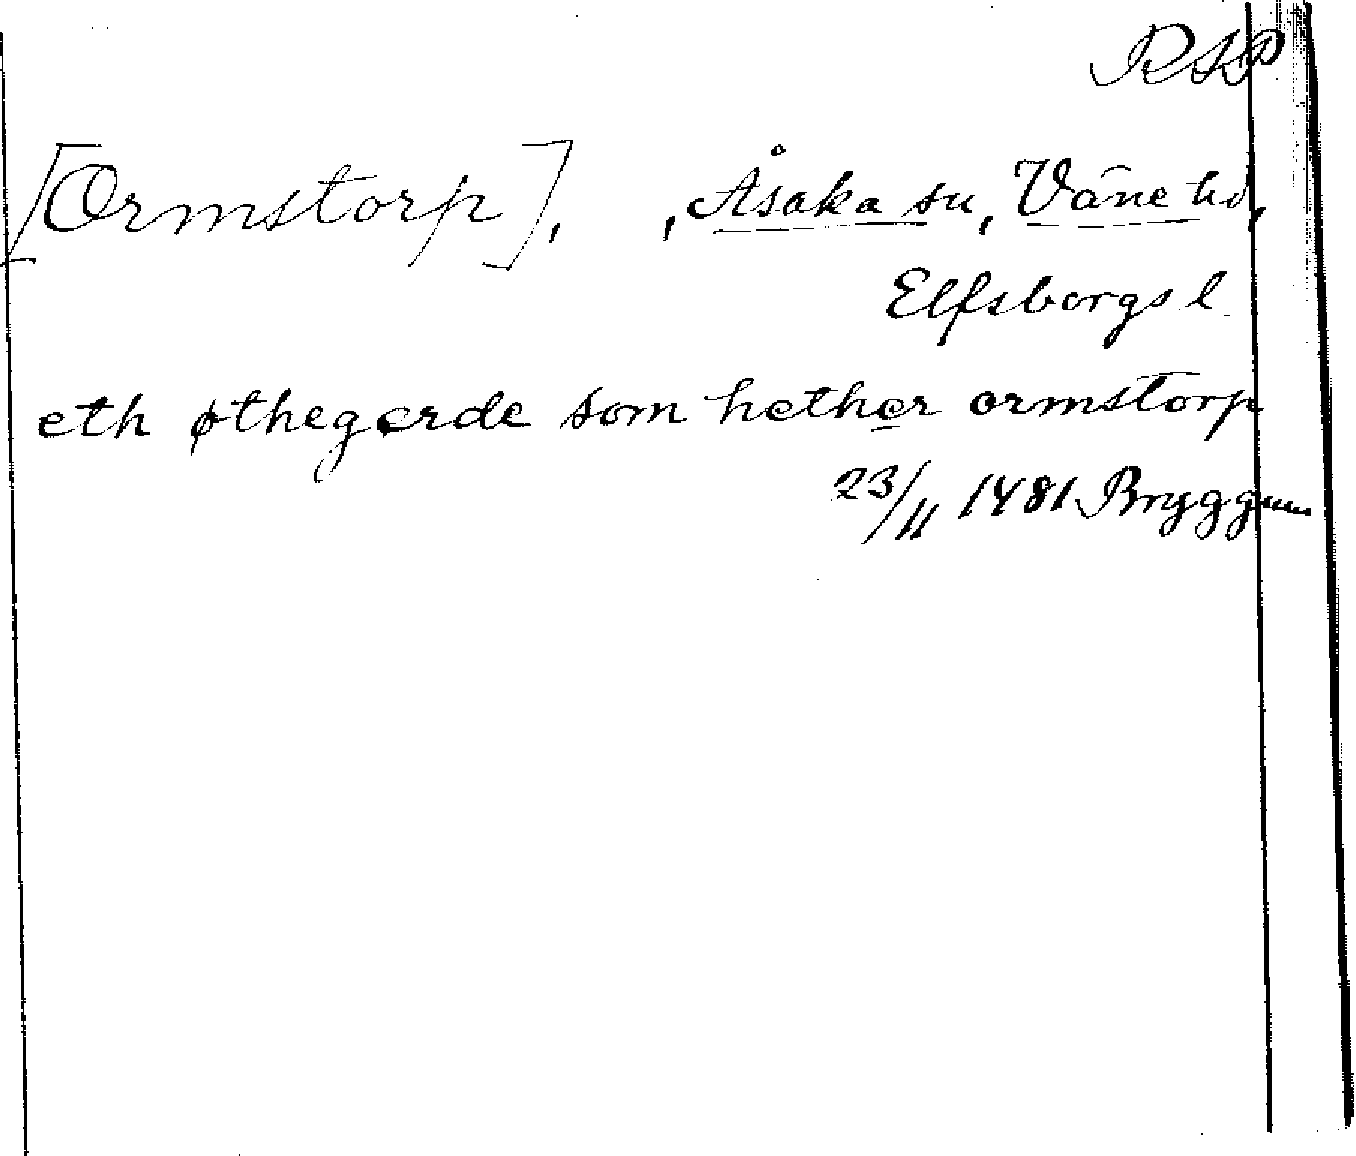 RAP
[Ormstorp], , Åsaka sn, Väne hd,
Elfsborgs l
eth øthegærde som hether ormstorp
23/11 1481 Bryggum